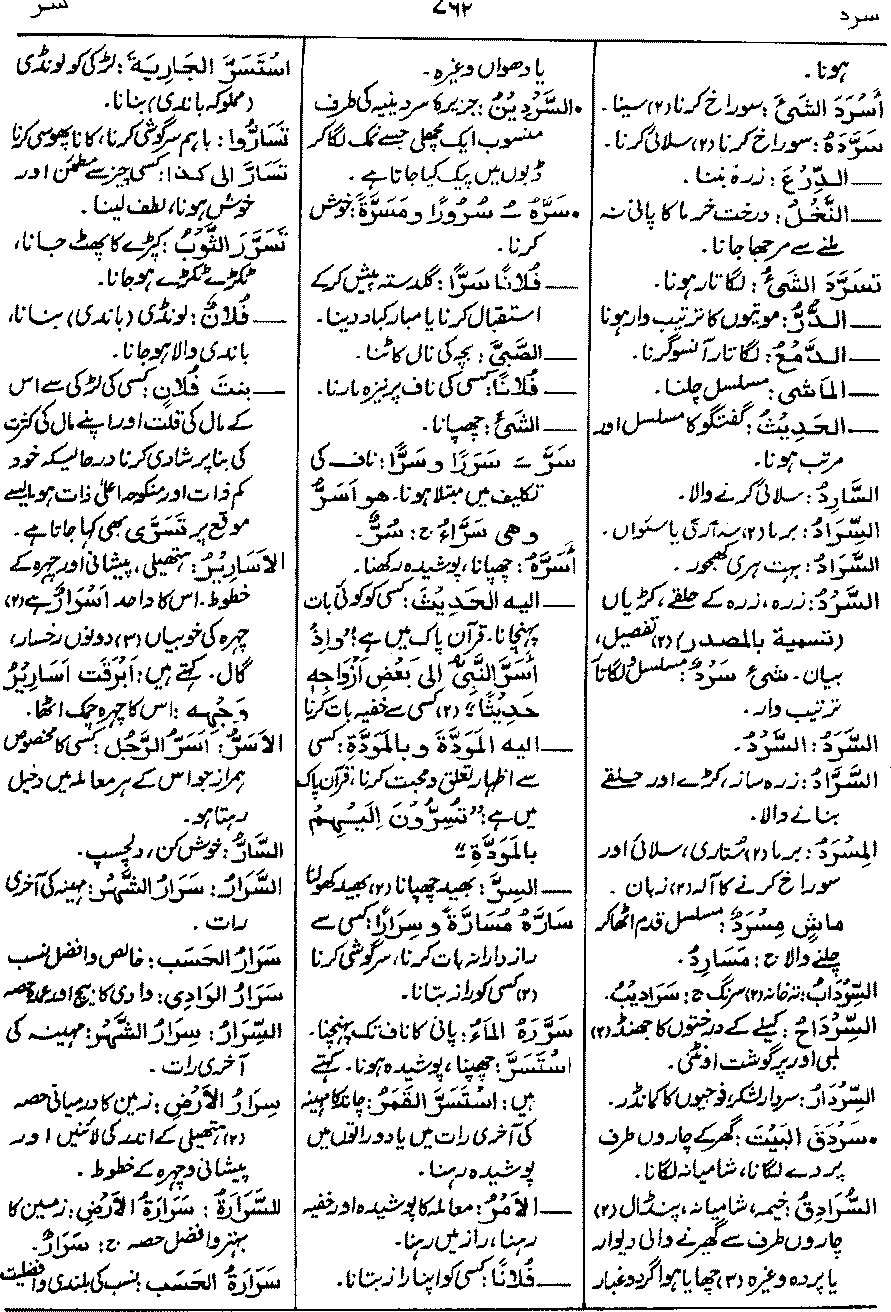 سرد
۷۶۲
سر
ہونا۔
أَسْرَدَ الشَّئَ: سوراخ کرنا (۲) سینا۔
سَرَّدَهُ: سوراخ کرنا (۲) سلائی کرنا۔
— الدِّرْعَ: زرہ بننا۔
— النَّخْلُ: درخت خرما کا پانی نہ
ملنے سے مرجھا جانا۔
تَسَرَّدَ الشَّئُ: لگاتار ہونا۔
— الدُّرُّ: موتیوں کا ترتیب وار ہونا
— الدَّمْعُ: لگاتار آنسو گرنا۔
— المَاشِی: مسلسل چلنا۔
— الحَدِیثُ: گفتگو کا مسلسل اور
مرتب ہونا۔
السَّارِدُ: سلائی کرنے والا۔
السِّرَادُ: برما (۲) سہ آری یا ستواں۔
السَّرَادُ: بہت ہری کھجور۔
السَّرْدُ: زرہ، زرہ کے حلقے، کڑیاں
(تسمیة بالمصدر) (۲) تفصیل،
بیان۔ شئ سَرْدٌ: مسلسل و لگاتار
ترتیب وار۔
السَّرَدُ: السَّرْدُ۔
السَّرَّادُ: زرہ ساز، کڑے اور حلقے
بنانے والا۔
المِسْرَدُ: برما (۲) سُتاری، سلائی اور
سوراخ کرنے کا آلہ (۳) زبان۔
مَاشٍ مِسْرَدٌ: مسلسل قدم اٹھا کر
چلنے والا ج: مَسَارِدُ۔
السِّرْدَابُ: تہ خانہ (۲) سرنگ ج: سَرَادِیبُ۔
السِّرْدَاحُ: کیلے کے درختوں کا جھنڈ (۲)
لمبی اور پر گوشت اونٹنی۔
السِّرْدَارُ: سردار لشکر، فوجیوں کا کمانڈر۔
• سَرْدَقَ البَیْتَ: گھر کے چاروں طرف
پردے لگانا، شامیانہ لگانا۔
السُّرَادِقُ: خیمہ، شامیانہ، پنڈال (۲)
چاروں طرف سے گھرنے والی دیوار
یا پردہ وغیرہ (۳) چھایا ہوا گرد و غبار
یا دھواں وغیرہ۔
• السَّرْدِینُ: جزیرہ سردینیہ کی طرف
منسوب ایک مچھلی جسے نمک لگا کر
ڈبوں میں پیک کیا جاتا ہے۔
• سَرَّهُ ـُ سُرُورًا و مَسَرَّةً: خوش
کرنا۔
— فُلَانًا سَرًّا: گلدستہ پیش کرکے
استقبال کرنا یا مبارکباد دینا۔
— الصَّبِیَّ: بچہ کی نال کاٹنا۔
— فُلَانًا: کسی کی ناف پر نیزہ مارنا۔
— الشَّئَ: چھپانا۔
سَرَّ ـَ سَرَرًا و سَرًّا: ناف کی
تکلیف میں مبتلا ہونا۔ هو أَسَرُّ
وهی سَرَّاءُ ج: سُرٌّ۔
أَسَرَّهُ: چھپانا، پوشیدہ رکھنا۔
— الیه الحَدِیثَ: کسی کو کوئی بات
پہنچانا۔ قرآن پاک میں ہے: "وَإِذْ
أَسَرَّ النَّبِیُّ الی بَعْضِ أَزْوَاجِهِ
حَدِیثًا" (۲) کسی سے خفیہ بات کرنا
— الیه المَوَدَّةَ و بالمَوَدَّةِ: کسی
سے اظہار تعلق و محبت کرنا، قرآن پاک
میں ہے: "تُسِرُّونَ إِلَیْهِمْ
بِالْمَوَدَّةِ"
— السِرَّ: بھید چھپانا (۲) بھید کھولنا
سَارَّهُ مُسَارَّةً و سِرَارًا: کسی سے
رازدارانہ بات کرنا، سرگوشی کرنا
(۲) کسی کو راز بتانا۔
سَرَّرَهُ المَاءُ: پانی کا ناف تک پہنچنا۔
اسْتَسَرَّ: چھپنا، پوشیدہ ہونا۔ کہتے
ہیں: اسْتَسَرَّ القَمَرُ: چاند کا مہینہ
کی آخری رات میں یا دو راتوں میں
پوشیدہ رہنا۔
— الأَمْرُ: معاملہ کا پوشیدہ اور خفیہ
رہنا، راز میں رہنا۔
— فُلَانًا: کسی کو اپنا راز بتانا۔
اسْتَسَرَّ الجَارِیَةَ: لڑکی کو لونڈی
(مملوکہ باندی) بنانا۔
تَسَارُّوا: باہم سرگوشی کرنا، کانا پھوسی کرنا
تَسَارَّ الی کذا: کسی چیز سے مطمئن اور
خوش ہونا، لطف لینا۔
تَسَرَّرَ الثَّوْبُ: کپڑے کا پھٹ جانا،
ٹکڑے ٹکڑے ہو جانا۔
— فُلَانٌ: لونڈی (باندی) بنانا،
باندی والا ہو جانا۔
— بنتَ فُلَانٍ: کسی کی لڑکی سے اس
کے مال کی قلت اور اپنے مال کی کثرت
کی بنا پر شادی کرنا درحالیکہ خود
کم ذات اور منکوحہ اعلیٰ ذات ہو، ایسے
موقع پر تَسَرَّی بھی کہا جاتا ہے۔
الأَسَارِیرُ: ہتھیلی، پیشانی اور چہرہ کے
خطوط۔ اس کا واحد أَسْرَارٌ ہے (۲)
چہرہ کی خوبیاں (۳) دونوں رخسار،
گال۔ کہتے ہیں: أَبْرَقَت أَسَارِیرُ
وَجْهِه: اس کا چہرہ چمک اٹھا۔
الأَسَرُّ: أَسَرُّ الرَّجُل: کسی کا مخصوص
ہمراز جو اس کے ہر معاملہ میں دخیل
رہتا ہو۔
السَّارُّ: خوش کن، دلچسپ۔
السَّرَارُ: سَرَارُ الشَّهْرِ: مہینہ کی آخری
رات۔
سَرَارُ الحَسَبِ: خالص و افضل نسب
سَرَارُ الوَادِی: وادی کا بیچ اور عمدہ حصہ
السِّرَارُ: سِرَارُ الشَّهْرِ: مہینہ کی
آخری رات۔
سِرَارُ الأَرْضِ: زمین کا درمیانی حصہ
(۲) ہتھیلی کے اندر کی لائنیں اور
پیشانی و چہرہ کے خطوط۔
السَّرَارَةُ: سَرَارَةُ الأَرْضِ: زمین کا
بہتر و افضل حصہ ج: سَرَارٌ۔
سَرَارَةُ الحَسَبِ: نسب کی بلندی و افضلیت